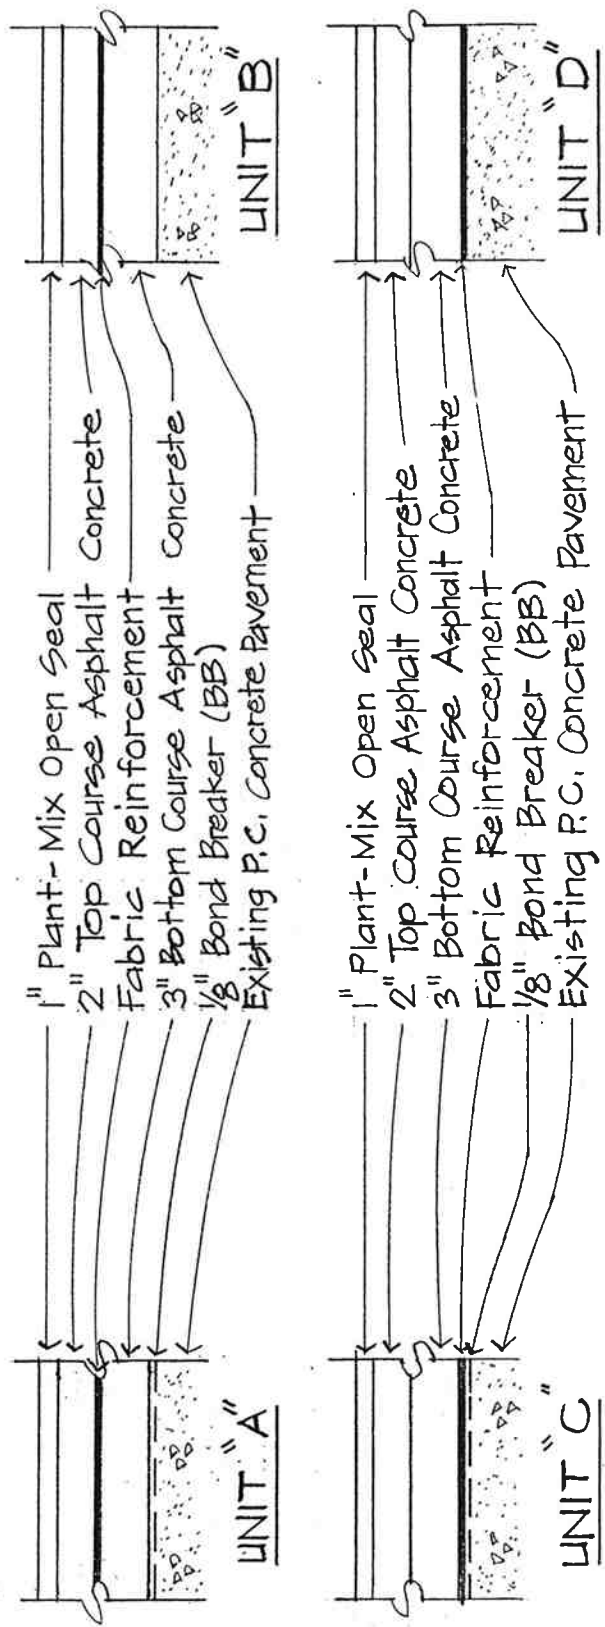 1" Plant-Mix Open Seal
2" Top Course Asphalt Concrete
Fabric Reinforcement
3" Bottom Course Asphalt Concrete
1/8" Bond Breaker (BB)
Existing P.C. Concrete Pavement
UNIT "A"
UNIT "B"
1" Plant-Mix Open Seal
2" Top Course Asphalt Concrete
3" Bottom Course Asphalt Concrete
Fabric Reinforcement
1/8" Bond Breaker (BB)
Existing P.C. Concrete Pavement
UNIT "C"
UNIT "D"